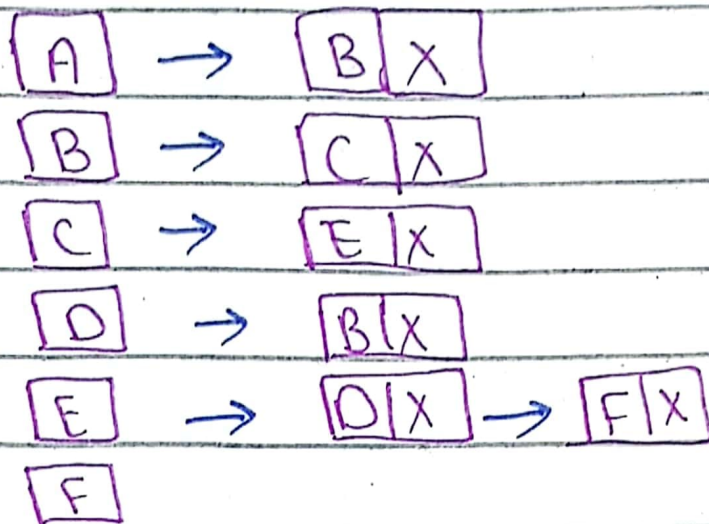 A → B X
B → C X
C → E X
D → B X
E → D X → F X
F